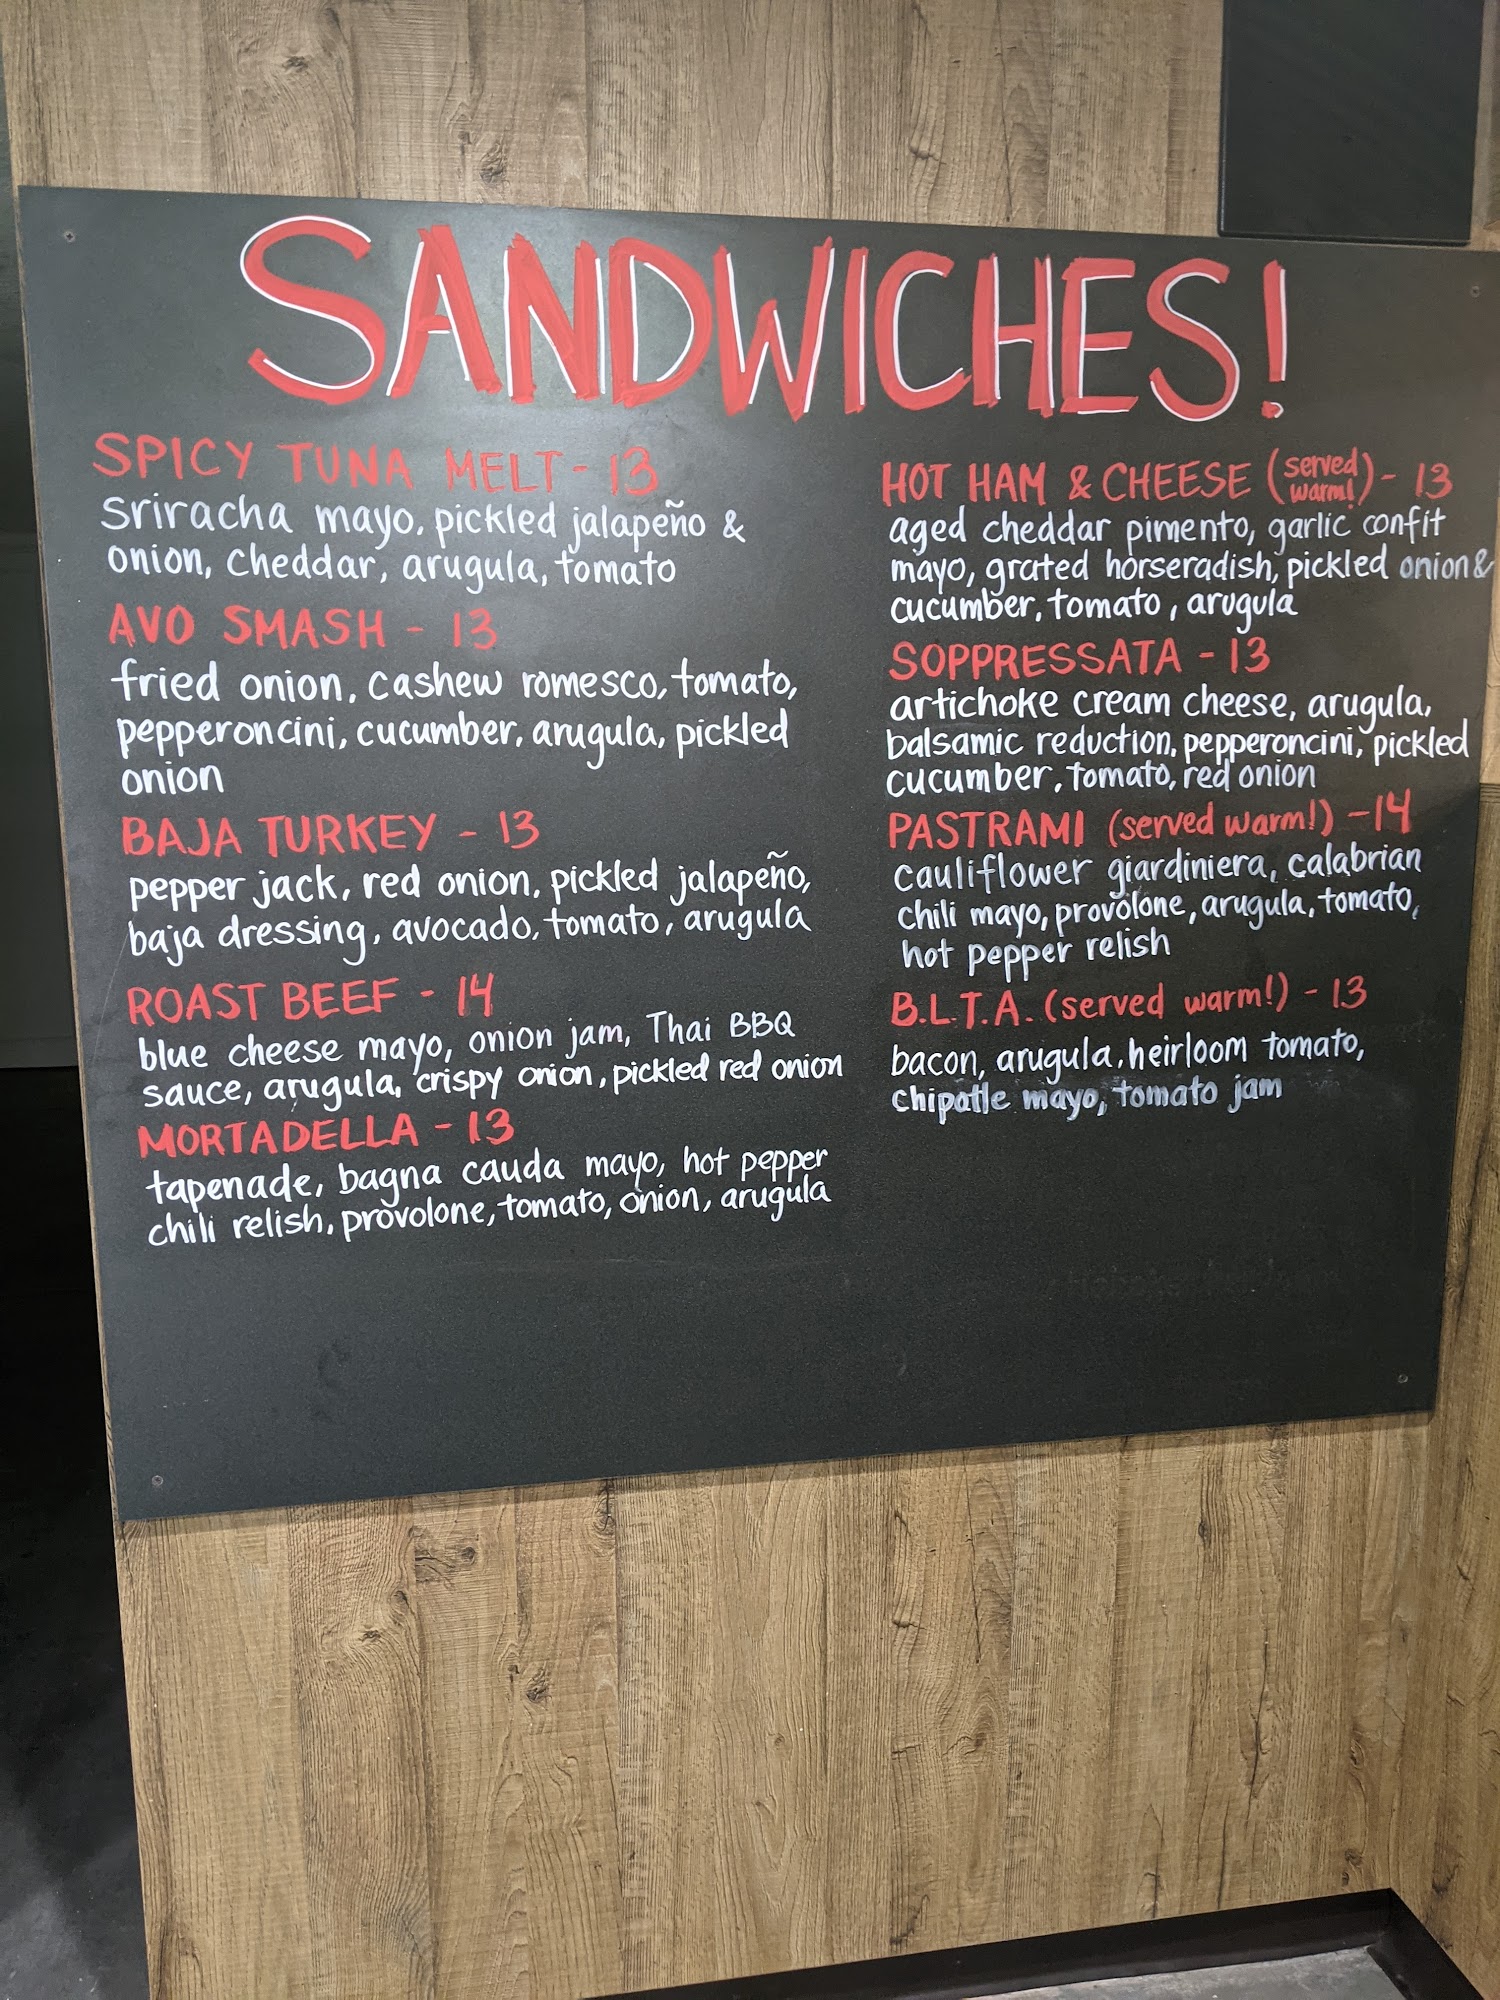 SANDWICHES!
SPICY TUNA MELT - 13
Sriracha mayo, pickled jalapeño &
onion, cheddar, arugula, tomato
AVO SMASH - 13
fried onion, cashew romesco, tomato,
pepperoncini, cucumber, arugula, pickled
onion
BAJA TURKEY - 13
pepper jack, red onion, pickled jalapeño,
baja dressing, avocado, tomato, arugula
ROAST BEEF - 14
blue cheese mayo, onion jam, Thai BBQ
sauce, arugula, crispy onion, pickled red onion
MORTADELLA - 13
tapenade, bagna cauda mayo, hot pepper
chili relish, provolone, tomato, onion, arugula
HOT HAM & CHEESE (served warm!) - 13
aged cheddar pimento, garlic confit
mayo, grated horseradish, pickled onion &
cucumber, tomato, arugula
SOPPRESSATA - 13
artichoke cream cheese, arugula,
balsamic reduction, pepperoncini, pickled
cucumber, tomato, red onion
PASTRAMI (served warm!) - 14
cauliflower giardiniera, calabrian
chili mayo, provolone, arugula, tomato,
hot pepper relish
B.L.T.A. (served warm!) - 13
bacon, arugula, heirloom tomato,
chipotle mayo, tomato jam